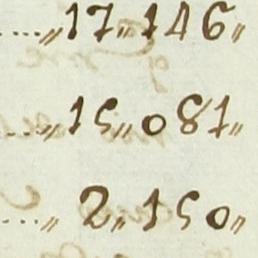 ....〃17〃146〃
....〃15〃081〃
....〃2〃150〃